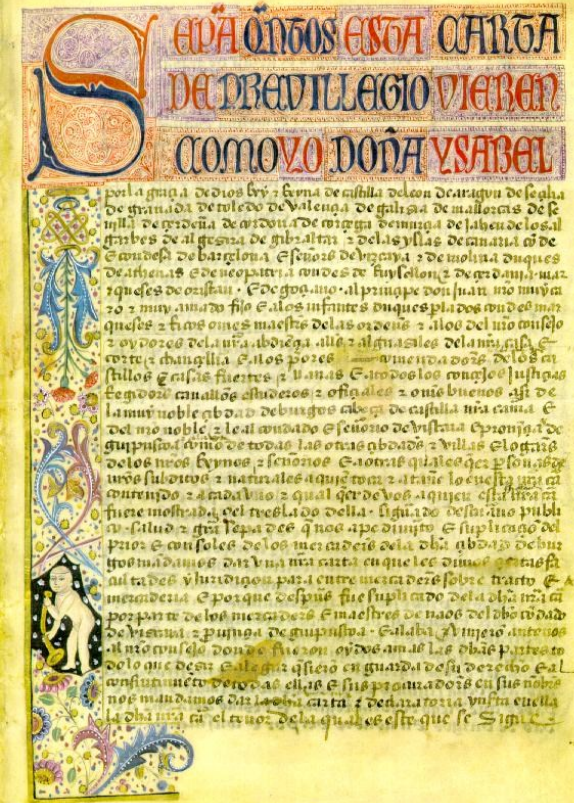 SEPÃ QÑTOS ESTA CARTA
DE PREVILLEGIO VIEREN
COMO YO DOÑA YSABEL
por la graçia de dios Rey & Reyna de castilla de leon de aragon de seçilia
de granada de toledo de valençia de galisia de mallorcas de se
uilla de çerdeña de cordoua de corçega de murçia de jahen de los al
garbes de algesira de gibraltar & de las yslas de canaria cõde
& condesa de barçelona & señores de vizcaya & de molina duques
de athenas & de neopatria condes de Ruysellon & de çerdania mar
queses de oristan & de goçiano al prinçipe don juan nro muy ca
ro & muy amado fijo & a los infantes duques plados condes mar
queses & Ricos omes maestres de las ordenes & a los del nro consejo
& oydores de la nra abdiençia alldes & alguasiles de la nra casa &
corte & chançillia & a los comendadores de los ca
stillos & casas fuertes & llanas & a todos los conçejos justiçias
Regidores caualleros escuderos & ofiçiales & omes buenos asi de
la muy noble çibdad de burgos cabeça de castilla nra camara &
del nro noble & leal condado & señorio de viscaia & prouinçia de
guipuscoa como de todas las otras çibdades & villas & logares
de los nros Reynos & señorios & a otras qualesqer personas
nros subditos & naturales a quien toca & atañe lo en esta nra cã
contenido & a cada vno & qual qer de vos a quien esta nra cã
fuere mostrada o el treslado della signado de escriuano publi
co salud & graçia sepades q nos a pedimiento & suplicaçion del
prior & consoles de los mercaderes de la dha çibdad de bur
gos mandamos dar vna nra carta en que les dimos çiertas fa
cultades & juridiçion para entre mercaderes sobre tracto &
mercaderia & por que despues fue suplicado de la dha nra cã
por parte de los mercaderes & maestres de naos del dho cõdado
de viscaia & prouinçia de guipuscoa & alaba & vinieron ante nos
al nro consejo donde fueron oydos amas las dhas partes to
do lo que desir & alegar quisieron en guarda de su derecho & al
consentimiento de todas ellas & sus procuradores en sus nõbres
nos mandamos dar la dha carta & declaratoria ynserta en ella
la dha nra cã el tenor de la qual es este que se Sigue